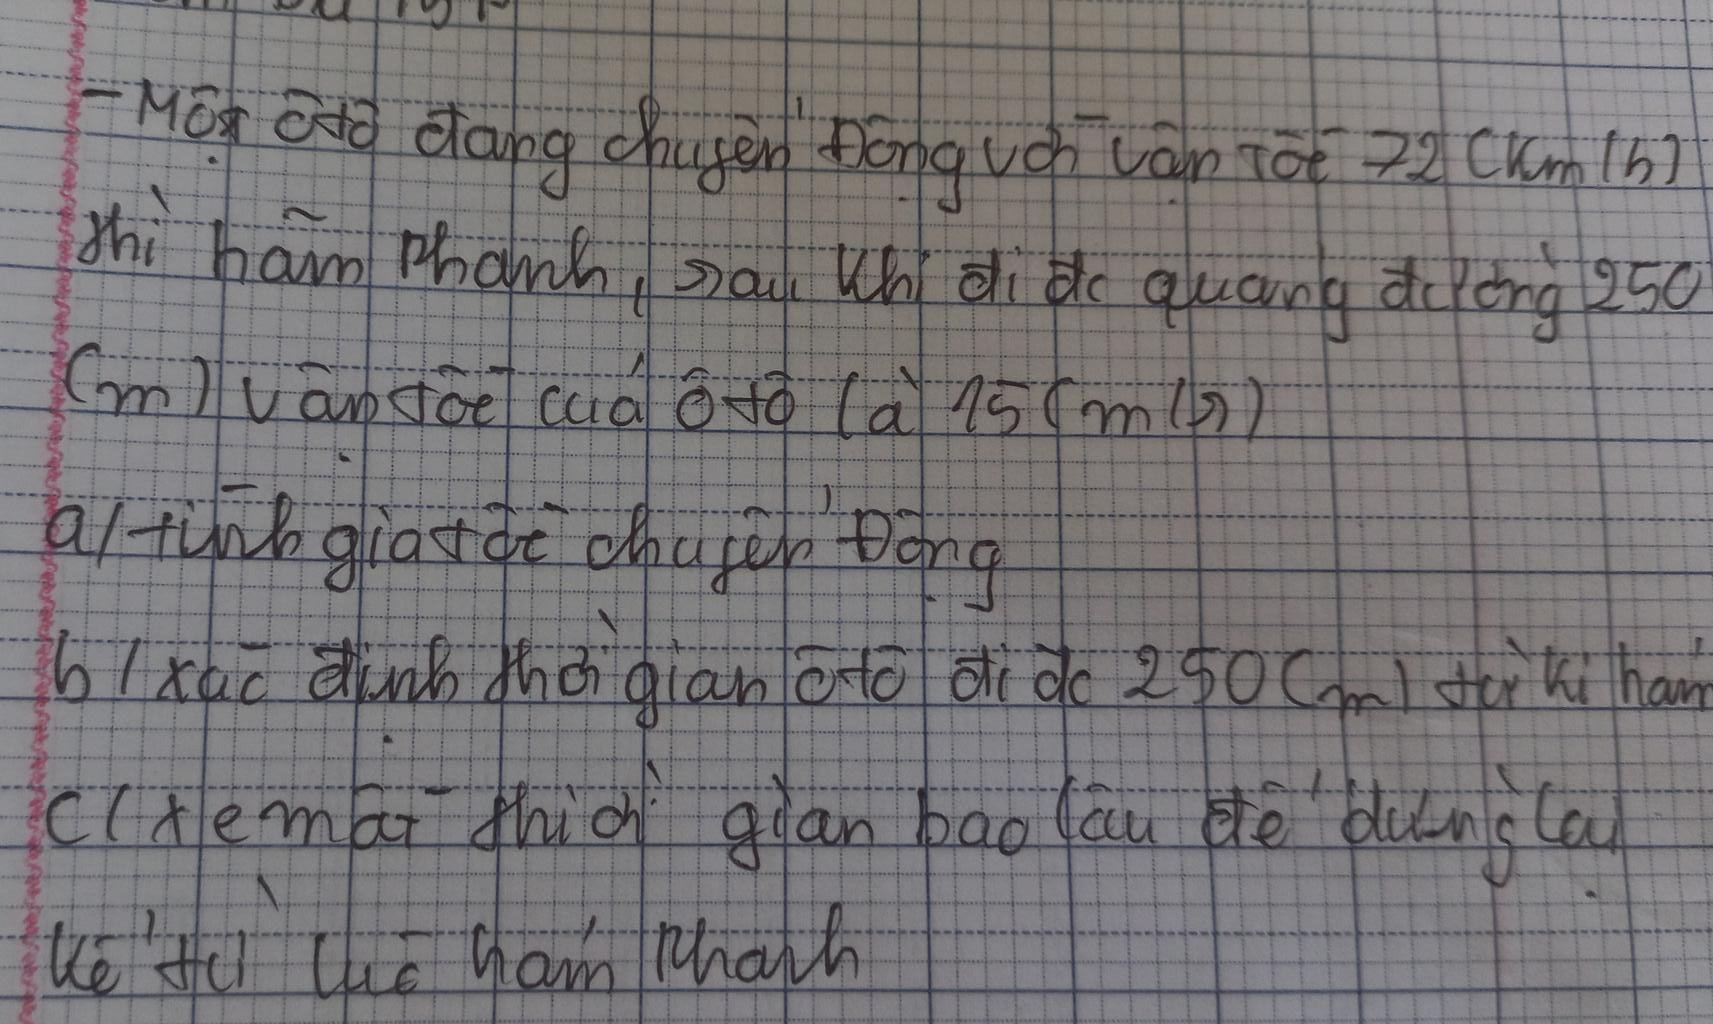 - Một ôtô đang chuyển Động với vận tốc 72 (km/h)
thì hãm phanh, sau khi đi đc quang đường 250
(m) vận tốc của ô tô là 15 (m/s)
a/ tính gia tốc chuyển Động
b/ xác định thời gian ôtô đi đc 250 (m) từ ki hãm
c/ xe mất thời gian bao lâu để dừng lại
kể từ lúc hãm phanh